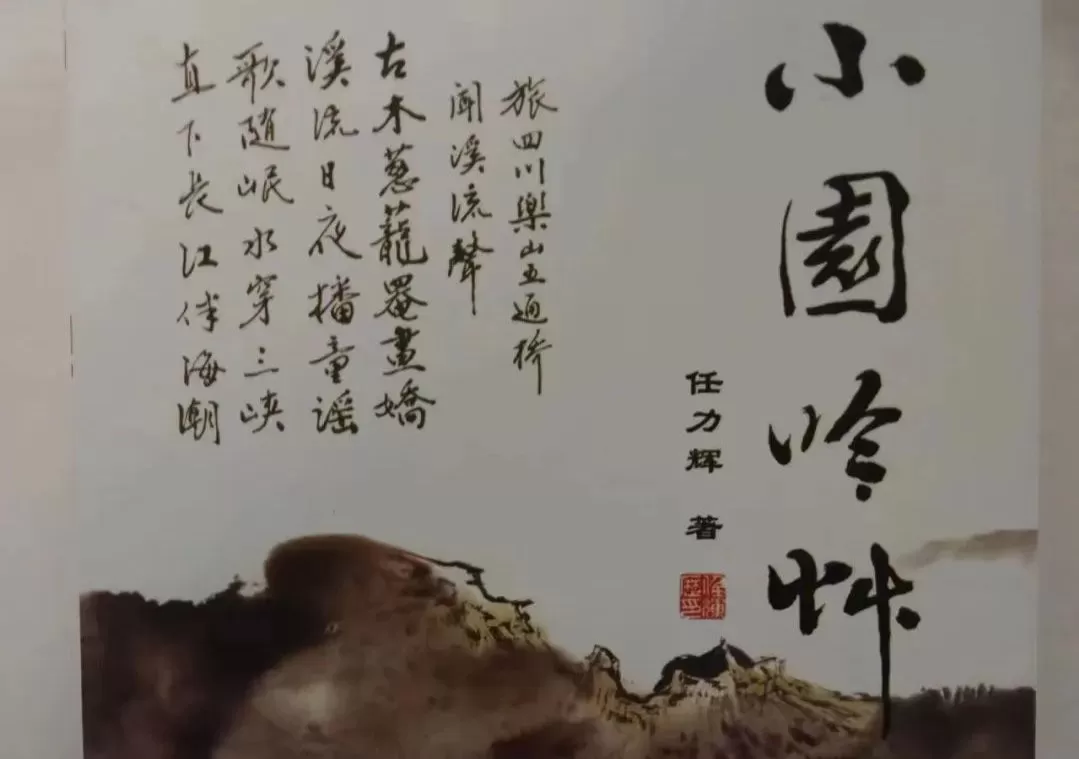 小園吟艸
任力辉 著
旅四川樂山五通桥
聞溪流聲
古木葱蘢罨畫嬌
溪流日夜播童謡
歌随岷水穿三峡
直下长江伴海潮